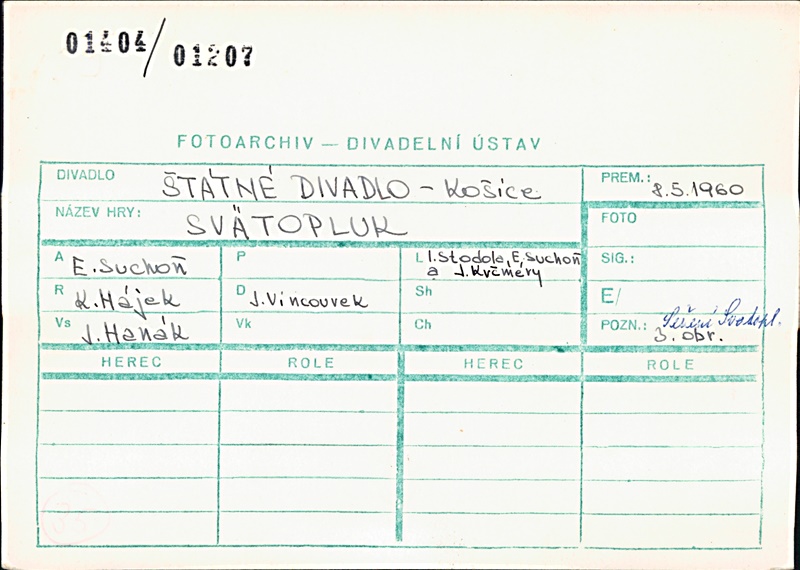 01404/01207
FOTOARCHIV — DIVADELNÍ ÚSTAV
DIVADLO ŠTÁTNÉ DIVADLO - Košice
PREM.: 8.5.1960
NÁZEV HRY: SVÄTOPLUK
FOTO
A E. Suchoň
P
L I. Stodola, E. Suchoň
a J. Krčméry
SIG.:
R K. Hájek
D J. Vincourek
Sh
E/
Vs J. Hanák
Vk
Ch
POZN.: Svatopl.
3. obr.
HEREC ROLE HEREC ROLE